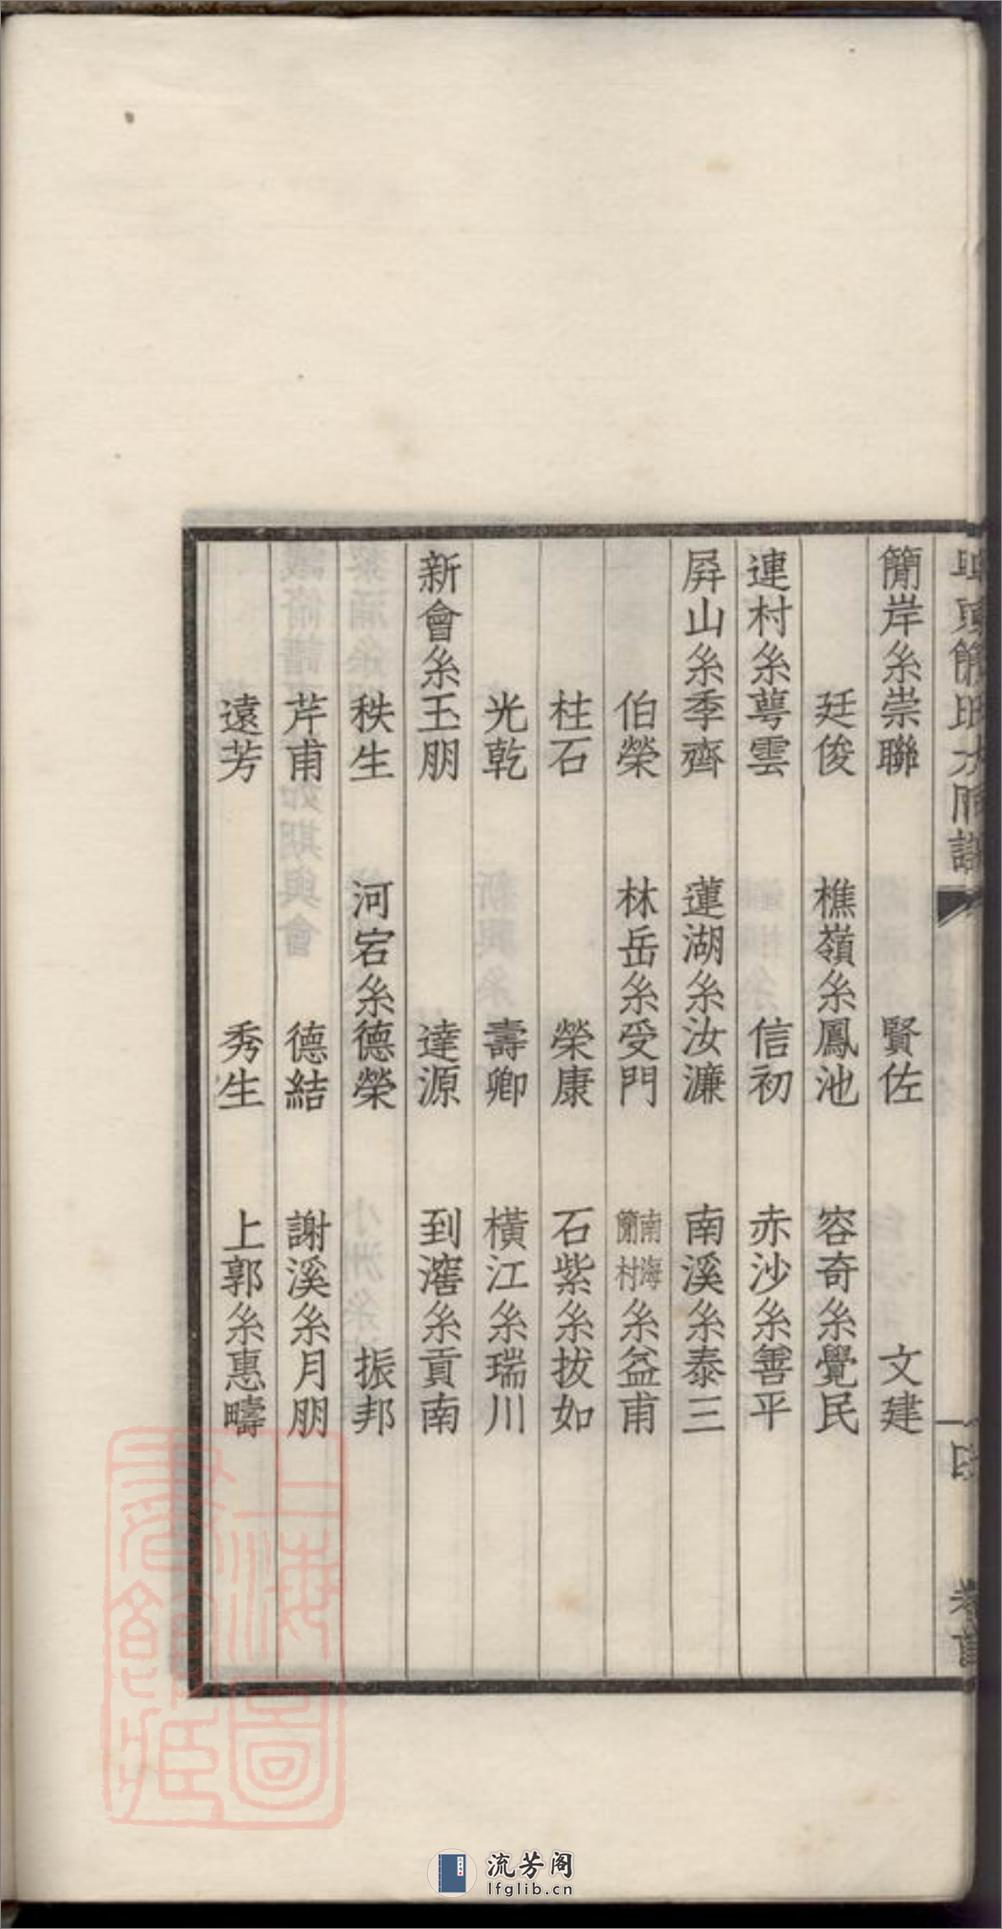 簡岸糸崇聯 賢佐 文建
廷俊 樵嶺糸鳳池 容奇糸覺民
連村糸萼雲 信初 赤沙糸善平
屛山糸季齊 蓮湖糸汝濂 南溪糸泰三
伯榮 林岳糸受門 南海簡村糸益甫
柱石 榮康 石紫糸拔如
光乾 壽卿 橫江糸瑞川
新會糸玉朋 達源 到滘糸貢南
秩生 河宕糸德榮 振邦
芹甫 德結 謝溪糸月朋
遠芳 秀生 上郭糸惠疇
上海圖書館藏
流芳阁
lfglib.cn